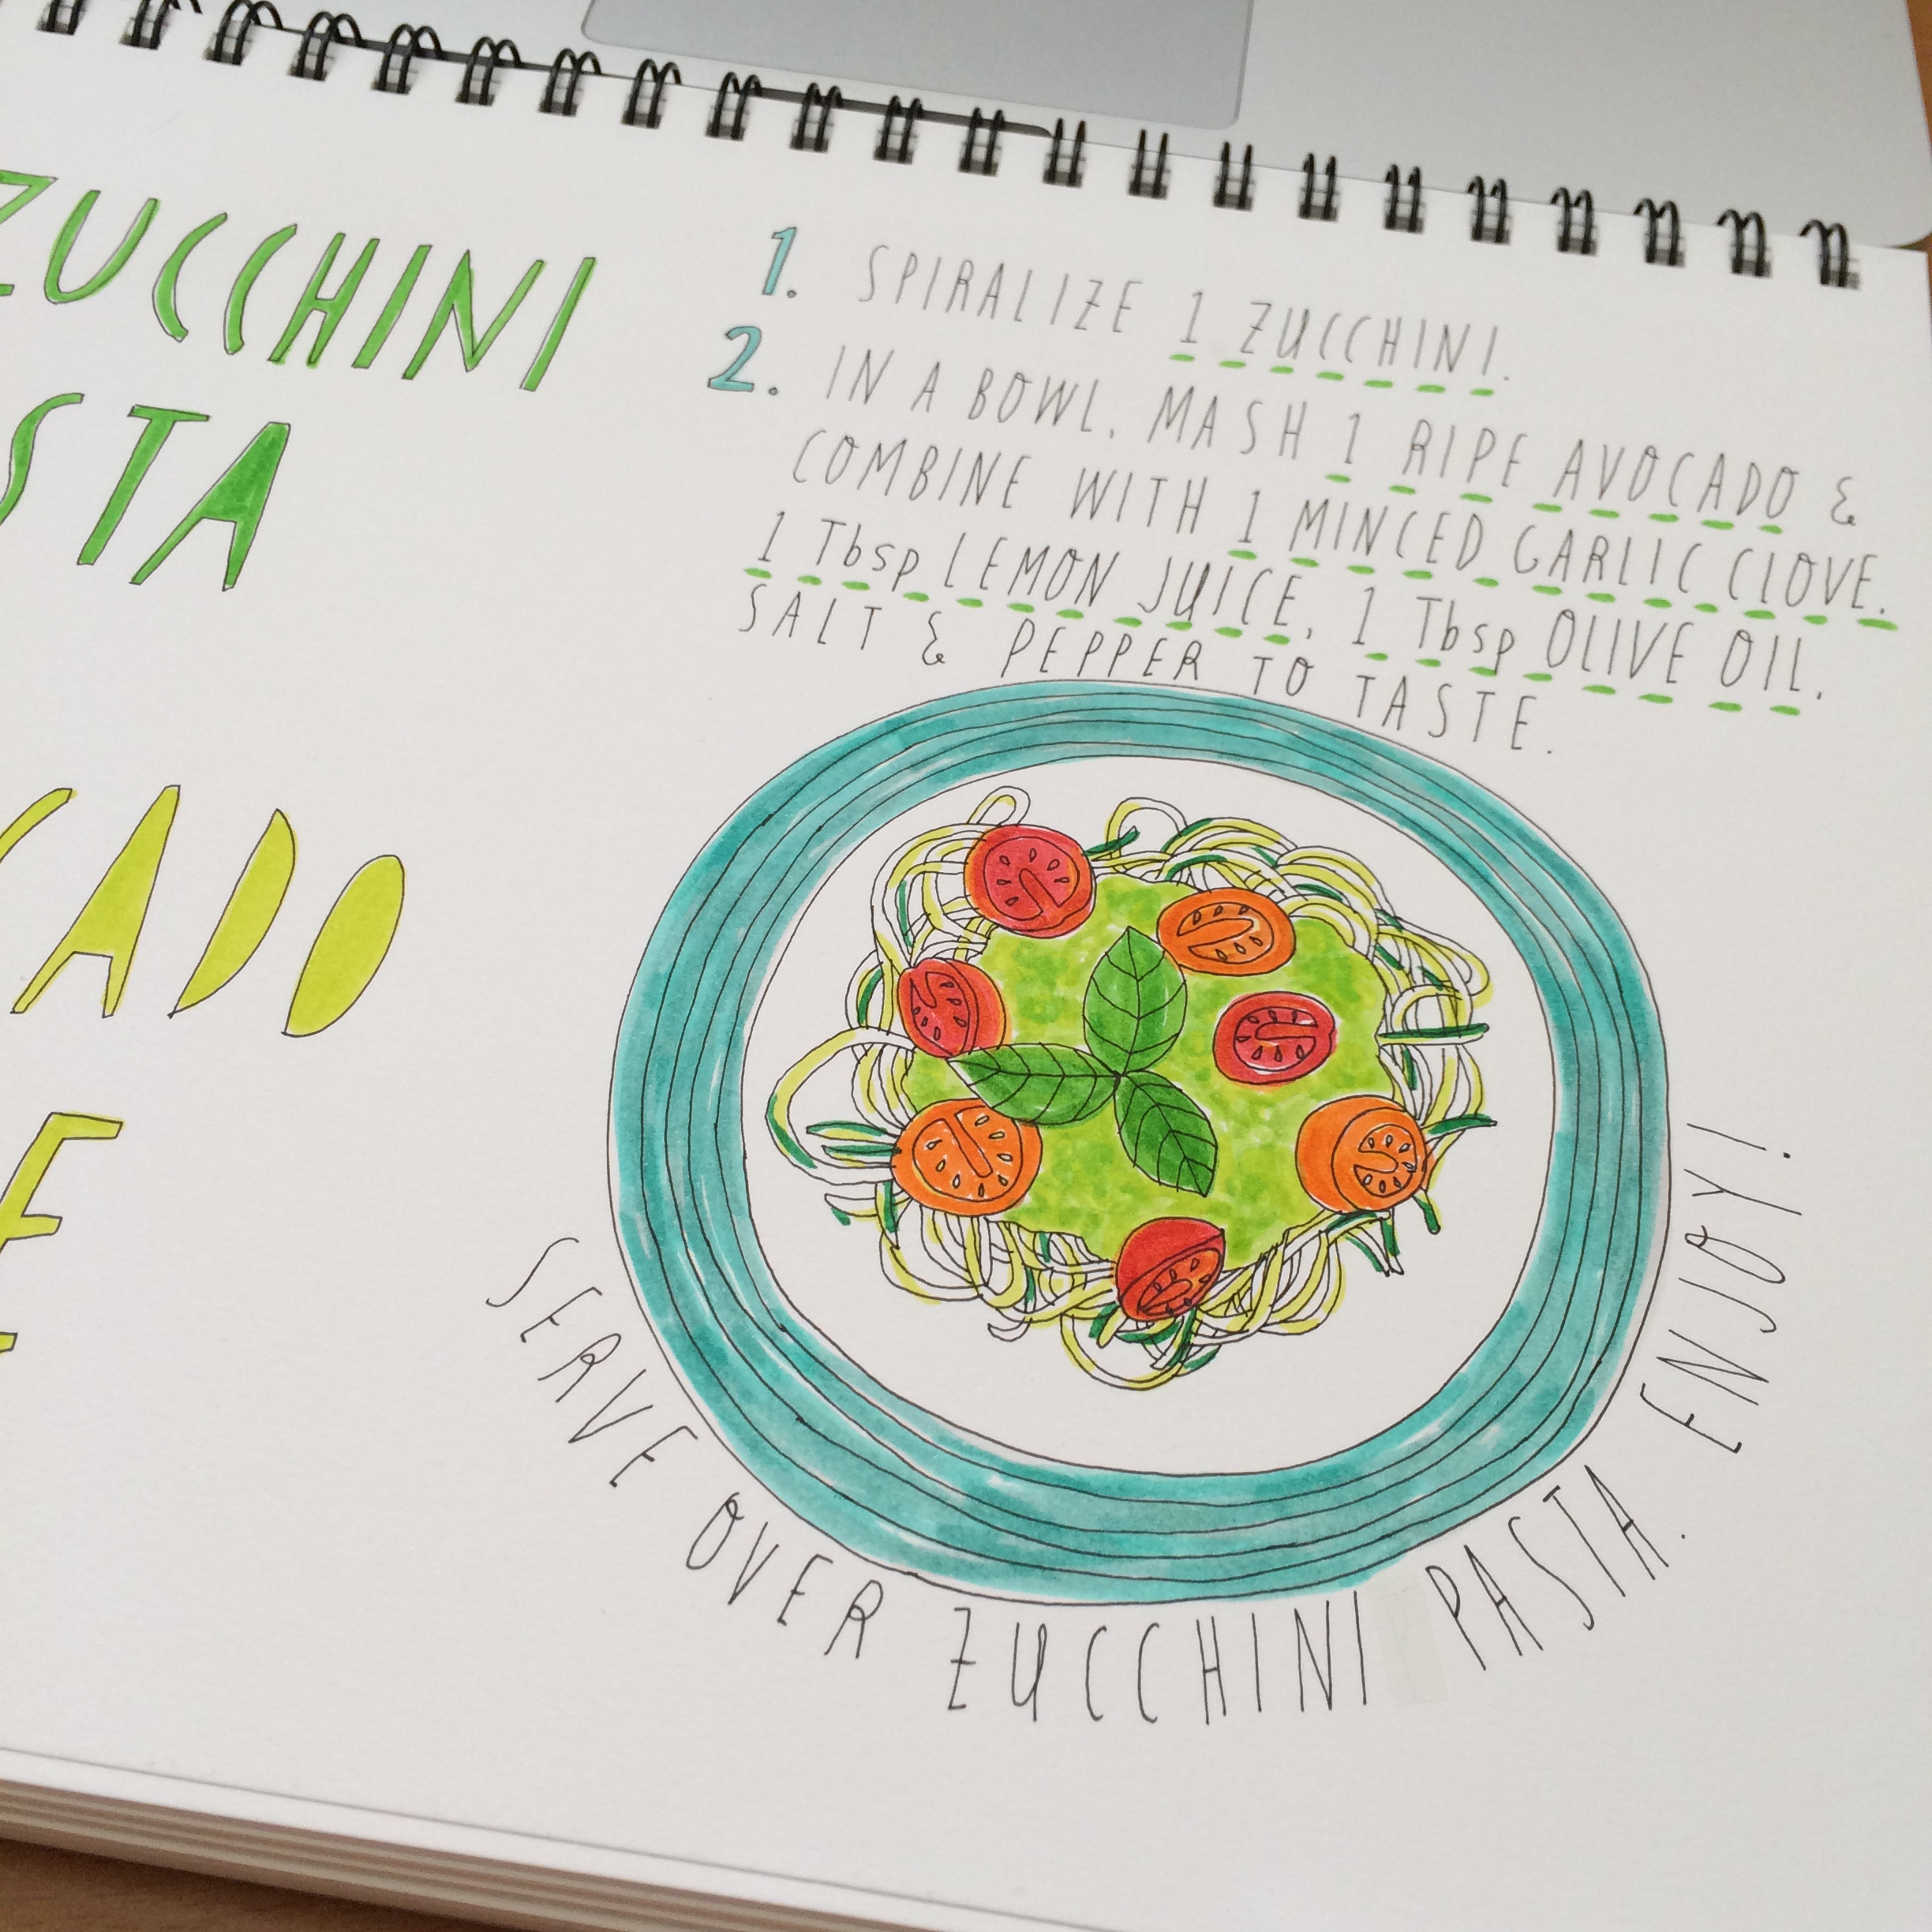 ZUCCHINI
STA
CADO
E
1. SPIRALIZE 1 ZUCCHINI.
2. IN A BOWL, MASH 1 RIPE AVOCADO &
COMBINE WITH 1 MINCED GARLIC CLOVE.
1 Tbsp LEMON JUICE, 1 Tbsp OLIVE OIL,
SALT & PEPPER TO TASTE.
SERVE OVER ZUCCHINI PASTA. ENJOY!